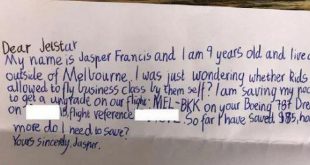 Dear Jetstar
My name is Jasper Francis and I am 9 years old and live
outside of Melbourne. I was just wondering whether kids
allowed to fly business class by them self? I am saving my
to get a upgrade on our flight: MEL-BKK on your Boeing 787
on flight reference So far I have saved
more do I need to save?
Yours sincerely, Jasper.